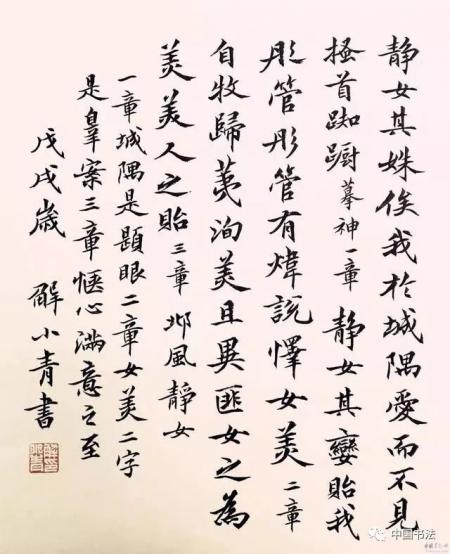 静女其姝俟我於城隅愛而不見
搔首踟躕摹神一章静女其孌貽我
彤管彤管有煒說懌女美二章
自牧歸荑洵美且異匪女之為
美美人之貽三章邶風静女
一章城隅是題眼二章女美二字
是羣案三章愜心滿意之至
戊戌歲 解小青書
中国书法